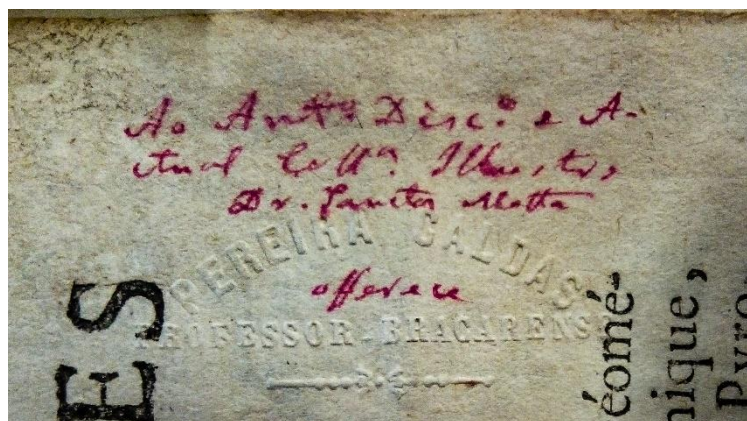 Ao Ant.º Disc.º e A-
ctual Coll.ª Illustre,
Dr. Santos Motta
PEREIRA CALDAS
offerece
PROFESSOR-BRACARENSE
ES
éomé-
nique,
Pyro